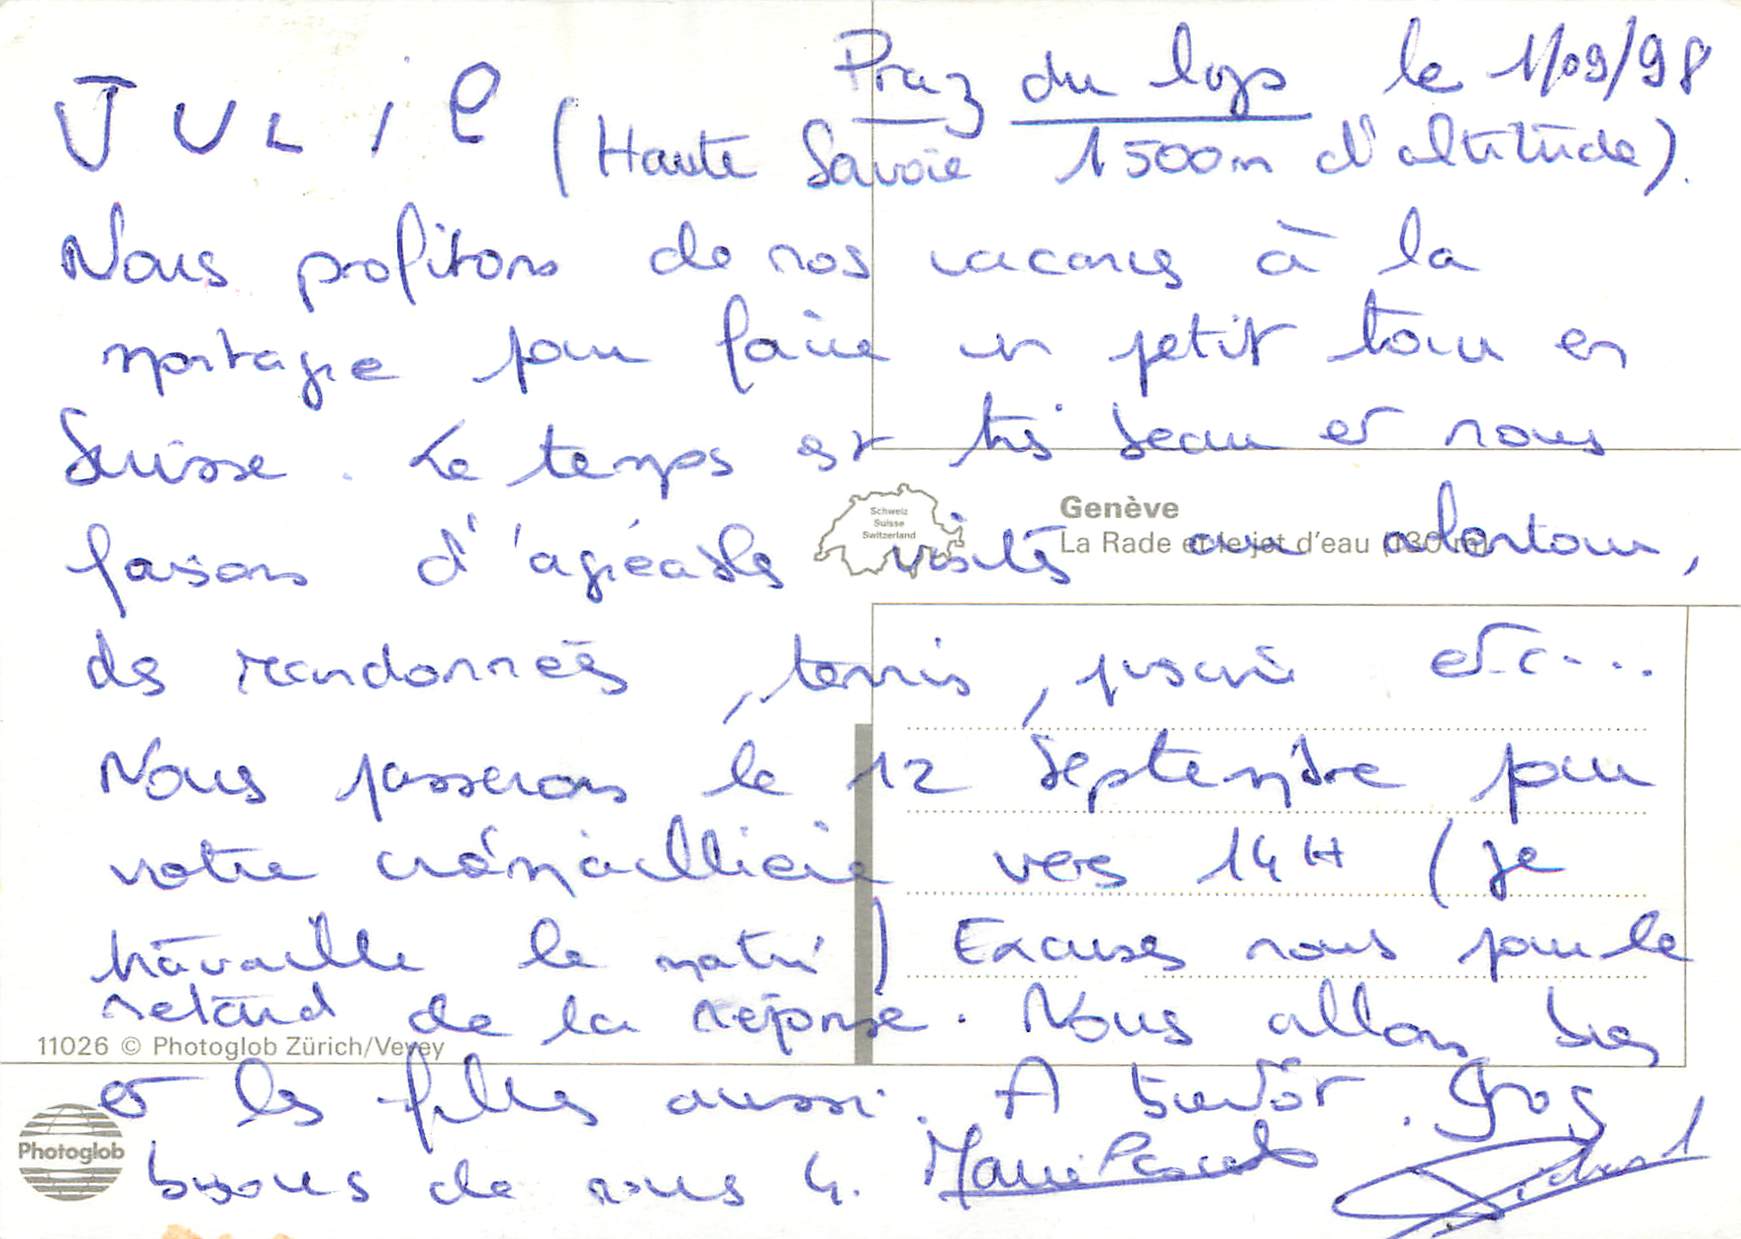 Praz du lys le 1/09/98
JULiE (Haute Savoie 1500m d'altitude).
Nous profitons de nos vacances à la
montagne pour faire un petit tour en
Suisse. Le temps est très beau et nous
faisons d'agréables visites aux alentour,
Schweiz
Suisse
Switzerland
Genève
La Rade et le jet d'eau (130 m)
des randonnées, tennis, piscine etc....
Nous passerons le 12 Septembre pour
votre crémaillière vers 14H (je
travaille le matin) Excuses nous pour le
retard de la réponse. Nous allons bien
11026 © Photoglob Zürich/Vevey
et les filles aussi. A bientôt. Gros
Photoglob
bisous de nous 4. Marie Pascale